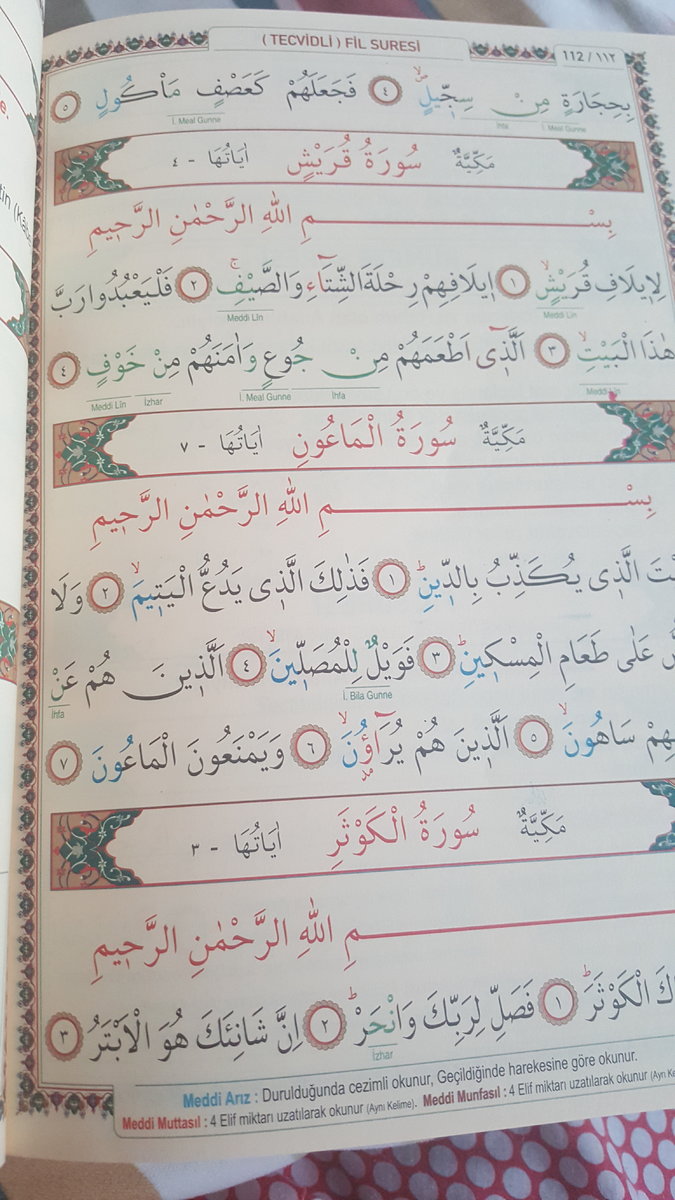 ( TECVİDLİ ) FİL SURESİ
112 / ١١٢
بِحِجَارَةٍ مِنْ سِجّ۪يلٍۙۖ ﴿٤﴾ فَجَعَلَهُمْ كَعَصْفٍ مَأْكُولٍ ﴿٥﴾
İ. Meal Gunne İhfa İ. Meal Gunne
مَكِّيَّةٌ سُورَةُ قُرَيْشٍ اٰيَاتُهَا - ٤
بِسْمِ اللّٰهِ الرَّحْمٰنِ الرَّح۪يمِ
لِا۪يلَافِ قُرَيْشٍۙ ﴿١﴾ ا۪يلَافِهِمْ رِحْلَةَ الشِّتَٓاءِ وَالصَّيْفِۚ ﴿٢﴾ فَلْيَعْبُدُوا رَبَّ
Meddi Lîn Meddi Lîn
هٰذَا الْبَيْتِۙ ﴿٣﴾ اَلَّذ۪ٓي اَطْعَمَهُمْ مِنْ جُوعٍ وَاٰمَنَهُمْ مِنْ خَوْفٍ ﴿٤﴾
Meddi Lîn İhfa İ. Meal Gunne İzhar Meddi Lîn
مَكِّيَّةٌ سُورَةُ الْمَاعُونِ اٰيَاتُهَا - ٧
بِسْمِ اللّٰهِ الرَّحْمٰنِ الرَّح۪يمِ
الَّذ۪ي يُكَذِّبُ بِالدّ۪ينِۜ ﴿١﴾ فَذٰلِكَ الَّذ۪ي يَدُعُّ الْيَت۪يمَۙ ﴿٢﴾ وَلَا
عَلٰى طَعَامِ الْمِسْك۪ينِۜ ﴿٣﴾ فَوَيْلٌ لِلْمُصَلّ۪ينَۙ ﴿٤﴾ اَلَّذ۪ينَ هُمْ عَنْ
İ. Bila Gunne İhfa
سَاهُونَۙ ﴿٥﴾ اَلَّذ۪ينَ هُمْ يُرَٓاؤُ۫نَۙ ﴿٦﴾ وَيَمْنَعُونَ الْمَاعُونَ ﴿٧﴾
مَكِّيَّةٌ سُورَةُ الْكَوْثَرِ اٰيَاتُهَا - ٣
مِ اللّٰهِ الرَّحْمٰنِ الرَّح۪يمِ
الْكَوْثَرَۜ ﴿١﴾ فَصَلِّ لِرَبِّكَ وَانْحَرْۜ ﴿٢﴾ اِنَّ شَانِئَكَ هُوَ الْاَبْتَرُ ﴿٣﴾
İzhar
Meddi Arız : Durulduğunda cezimli okunur, Geçildiğinde harekesine göre okunur.
Meddi Muttasıl : 4 Elif miktarı uzatılarak okunur (Aynı Kelime). Meddi Munfasıl : 4 Elif miktarı uzatılarak okunur